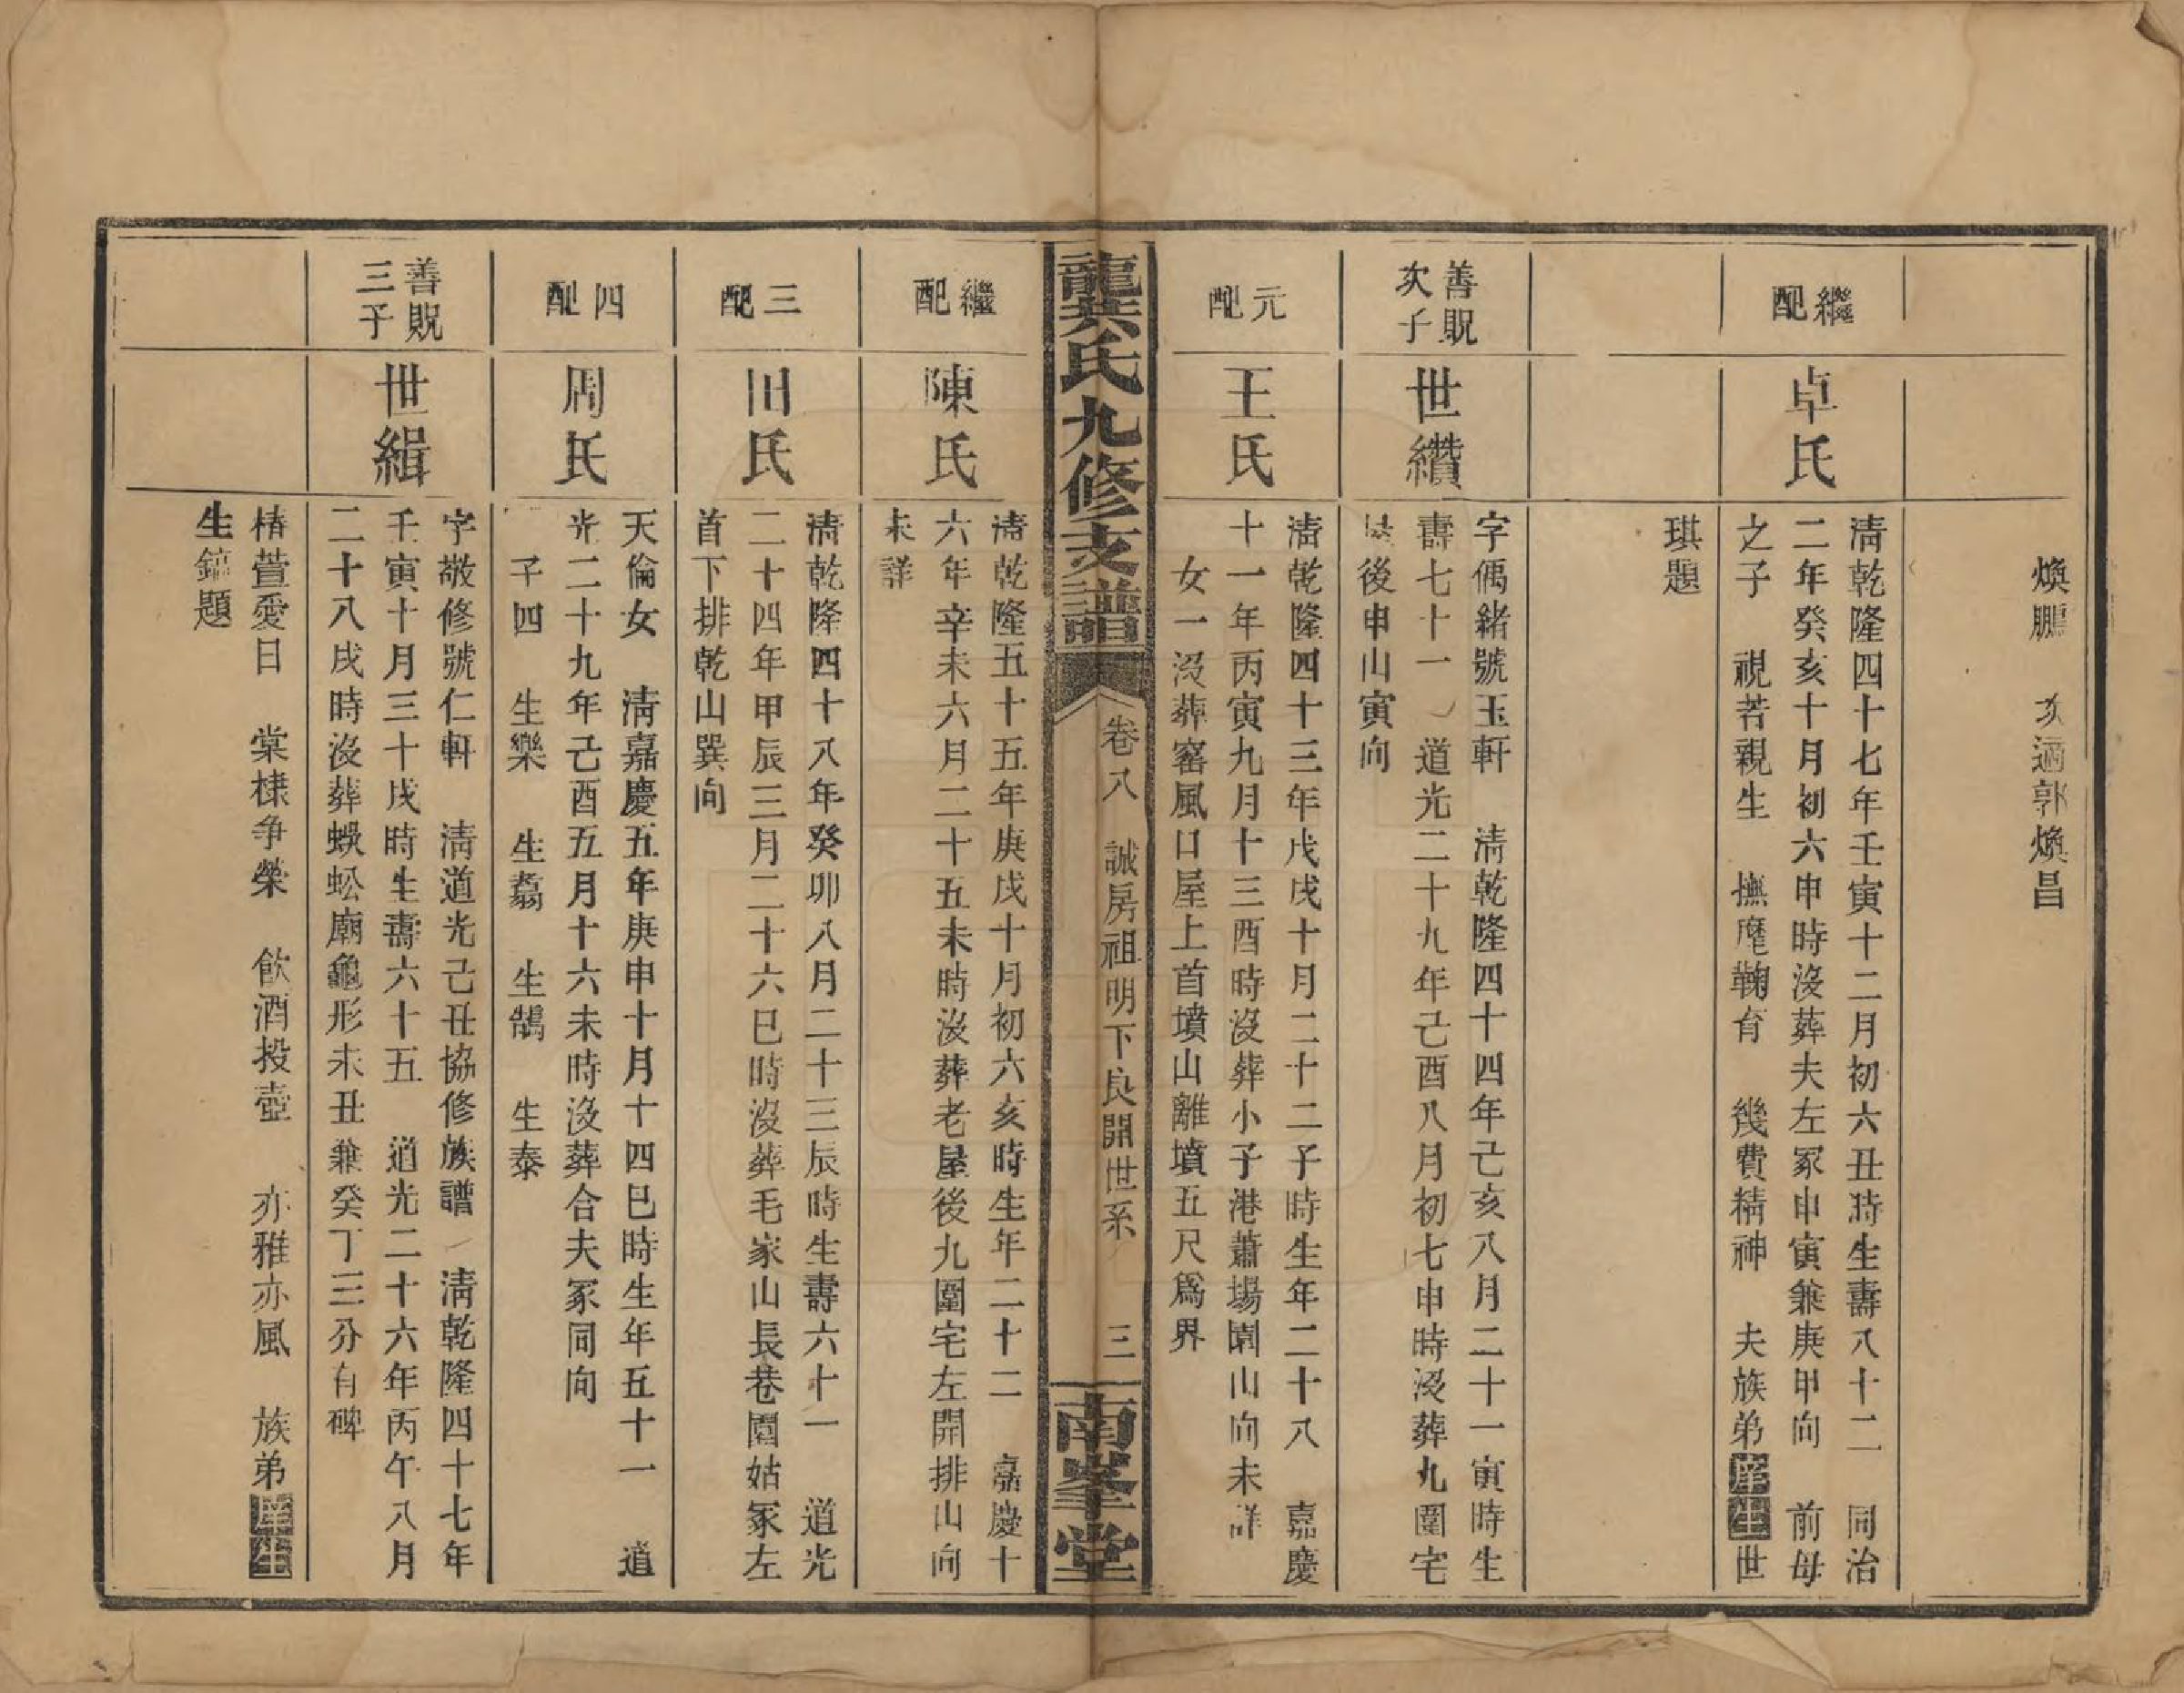 煥鵬　次適郭煥昌
繼配
卓氏
清乾隆四十七年壬寅十二月初六丑時生壽八十二　同治
二年癸亥十月初六申時沒葬夫左冢申寅兼庚甲向　前母
之子　視若親生　撫摩鞠育　幾費精神　夫族弟庠生世
琪題
善貺
次子
世纘
字偁緒號玉軒　清乾隆四十四年己亥八月二十一寅時生
壽七十一　道光二十九年己酉八月初七申時沒葬九圍宅
後申山寅向
元配
王氏
清乾隆四十三年戊戌十月二十二子時生年二十八　嘉慶
十一年丙寅九月十三酉時沒葬小子港蕭場園山向未詳
女一沒葬窰風口屋上首墳山離墳五尺爲界
龍葉氏九修支譜
卷八　誠房祖明下良開世系　三
南峯堂
繼配
陳氏
清乾隆五十五年庚戌十月初六亥時生年二十二　嘉慶十
六年辛未六月二十五未時沒葬老屋後九圍宅左開排山向
未詳
三配
田氏
清乾隆四十八年癸卯八月二十三辰時生壽六十一　道光
二十四年甲辰三月二十六巳時沒葬毛家山長巷園姑冢左
首下排乾山巽向
四配
周氏
天倫女　清嘉慶五年庚申十月十四巳時生年五十一　道
光二十九年己酉五月十六未時沒葬合夫冢同向
子四　生樂　生翥　生鵠　生泰
善貺
三子
世緝
字敬修號仁軒　清道光己丑協修族譜　清乾隆四十七年
壬寅十月三十戌時生壽六十五　道光二十六年丙午八月
二十八戌時沒葬蜈蚣廟龜形未丑兼癸丁三分有碑
椿萱愛日　棠棣爭榮　飲酒投壺　亦雅亦風　族弟庠生
生鎬題